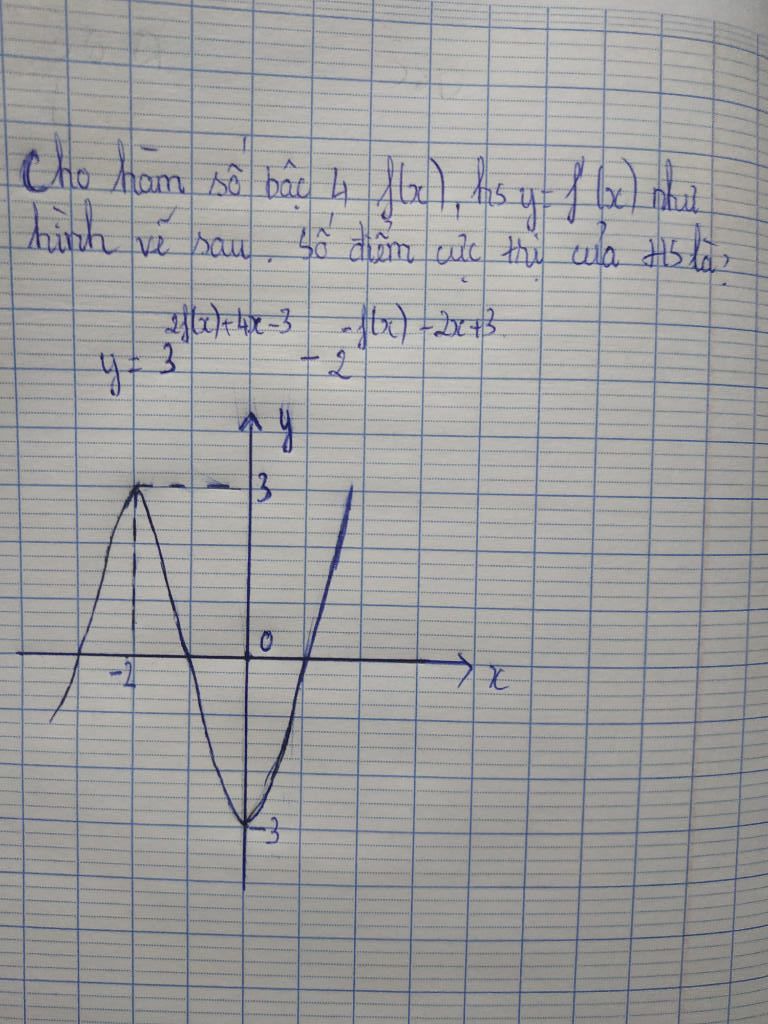 Cho hàm số bậc 4 f(x), hs y = f'(x) như
hình vẽ sau. Số điểm cực trị của HS là?
y = 3^{2f(x)+4x-3} - 2^{-f(x)-2x+3}
y
3
0
-2
x
-3